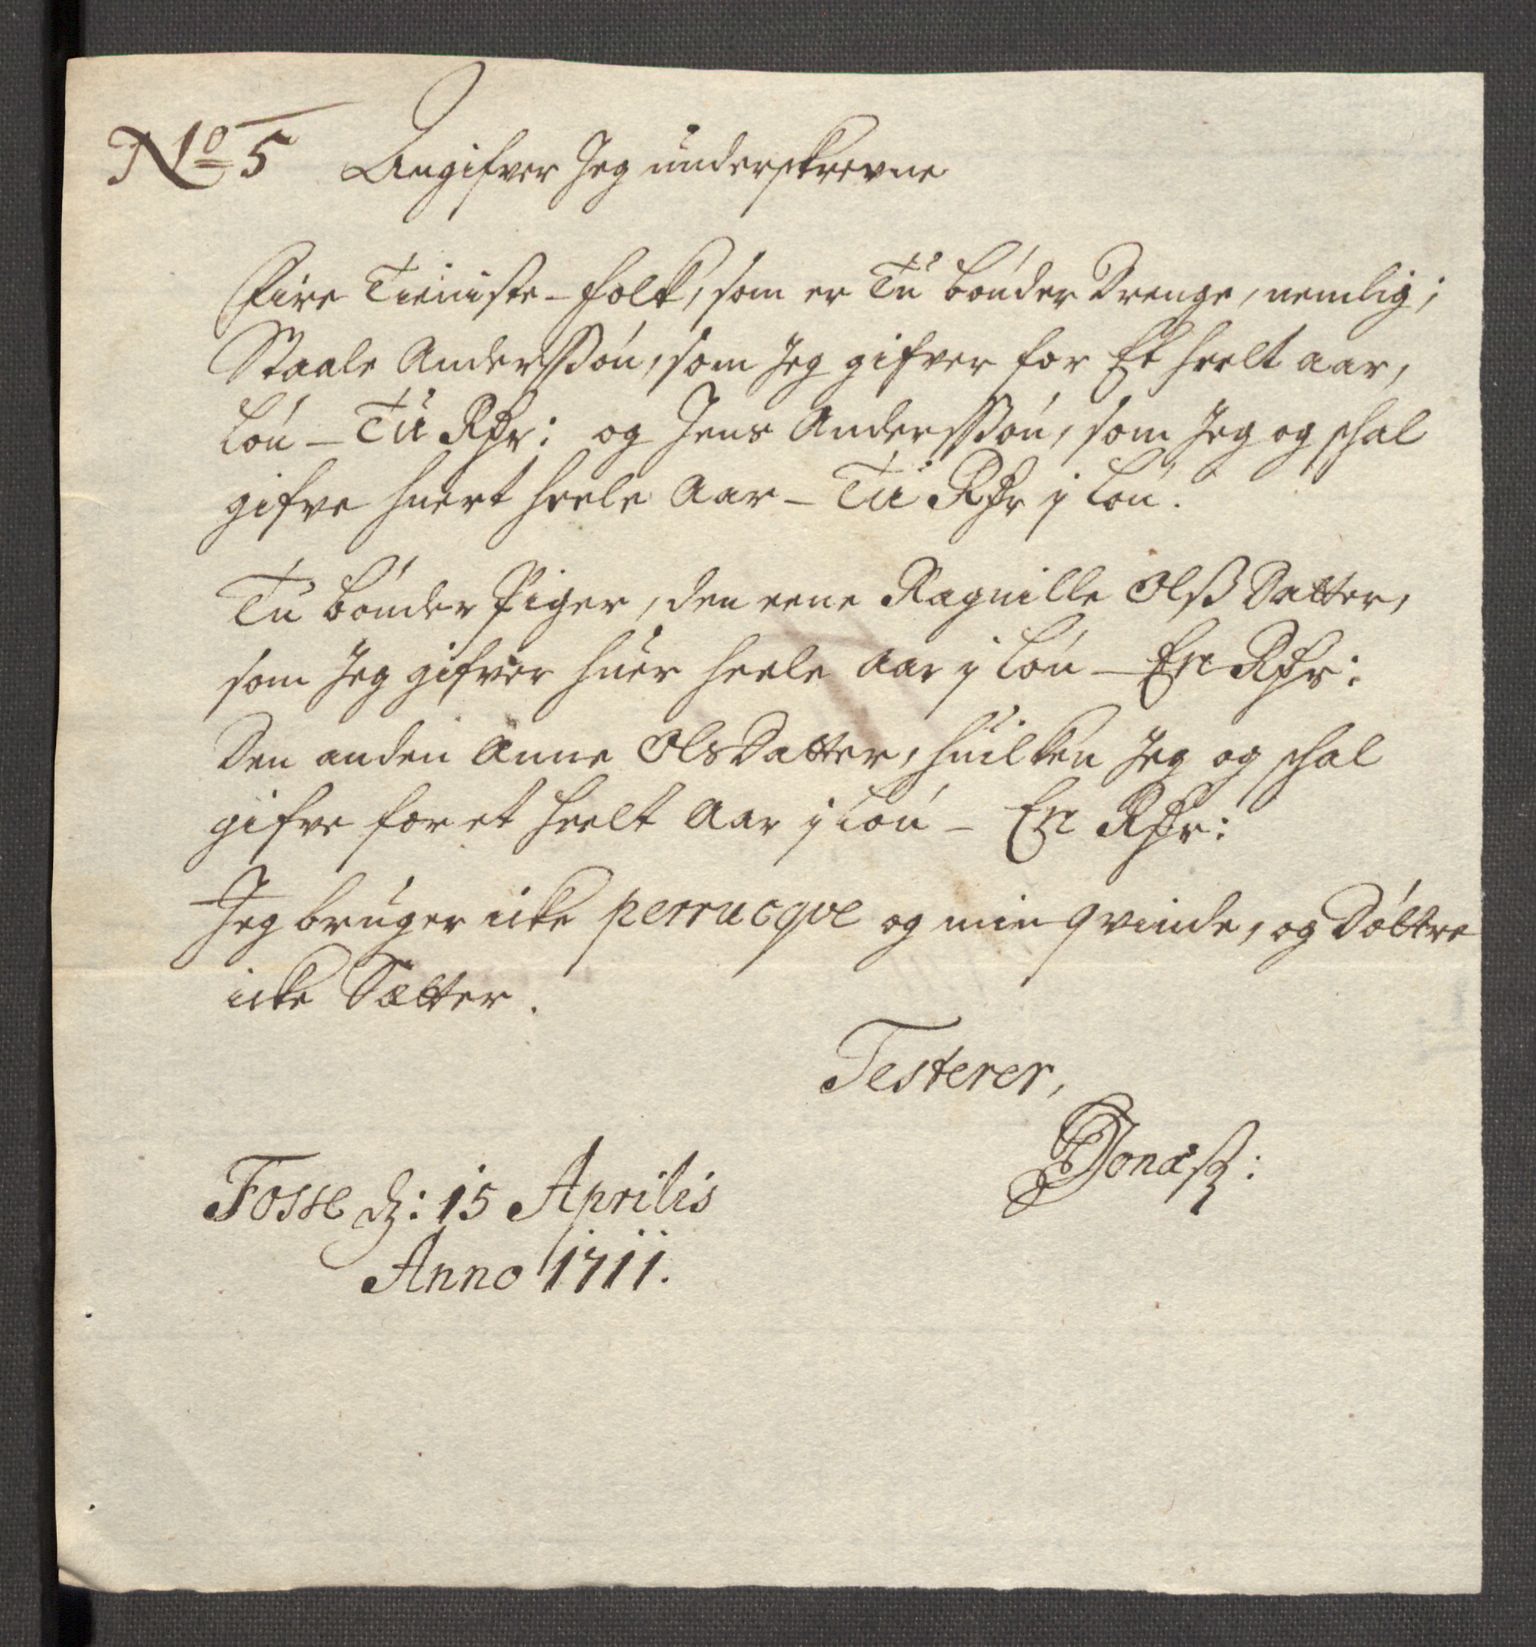 No 5 Angifver Jeg underskrevne
Fire Tieniste-folk, som er Tu bönder Drenge, nemlig;
Staale Anderssön, som Jeg gifver for Et heelt aar,
Lön - Tu Rdr: og Jens Anderssön, som Jeg og schal
gifve huert heele Aar - Tu Rdr j Lön.
Tu bönder Piger, den eene Ragnille Olß Datter,
som Jeg gifver huer heele Aar j Lön - En Rdr:
Den anden Anne OlsDatter, huilken Jeg og schal
gifve for et heelt Aar j Lön - En Rdr:
Jeg bruger icke perrucqve og min qvinde, og Döttre
icke Sætter.
Testerer,
Fosse d: 15 Aprilis
Anno 1711.